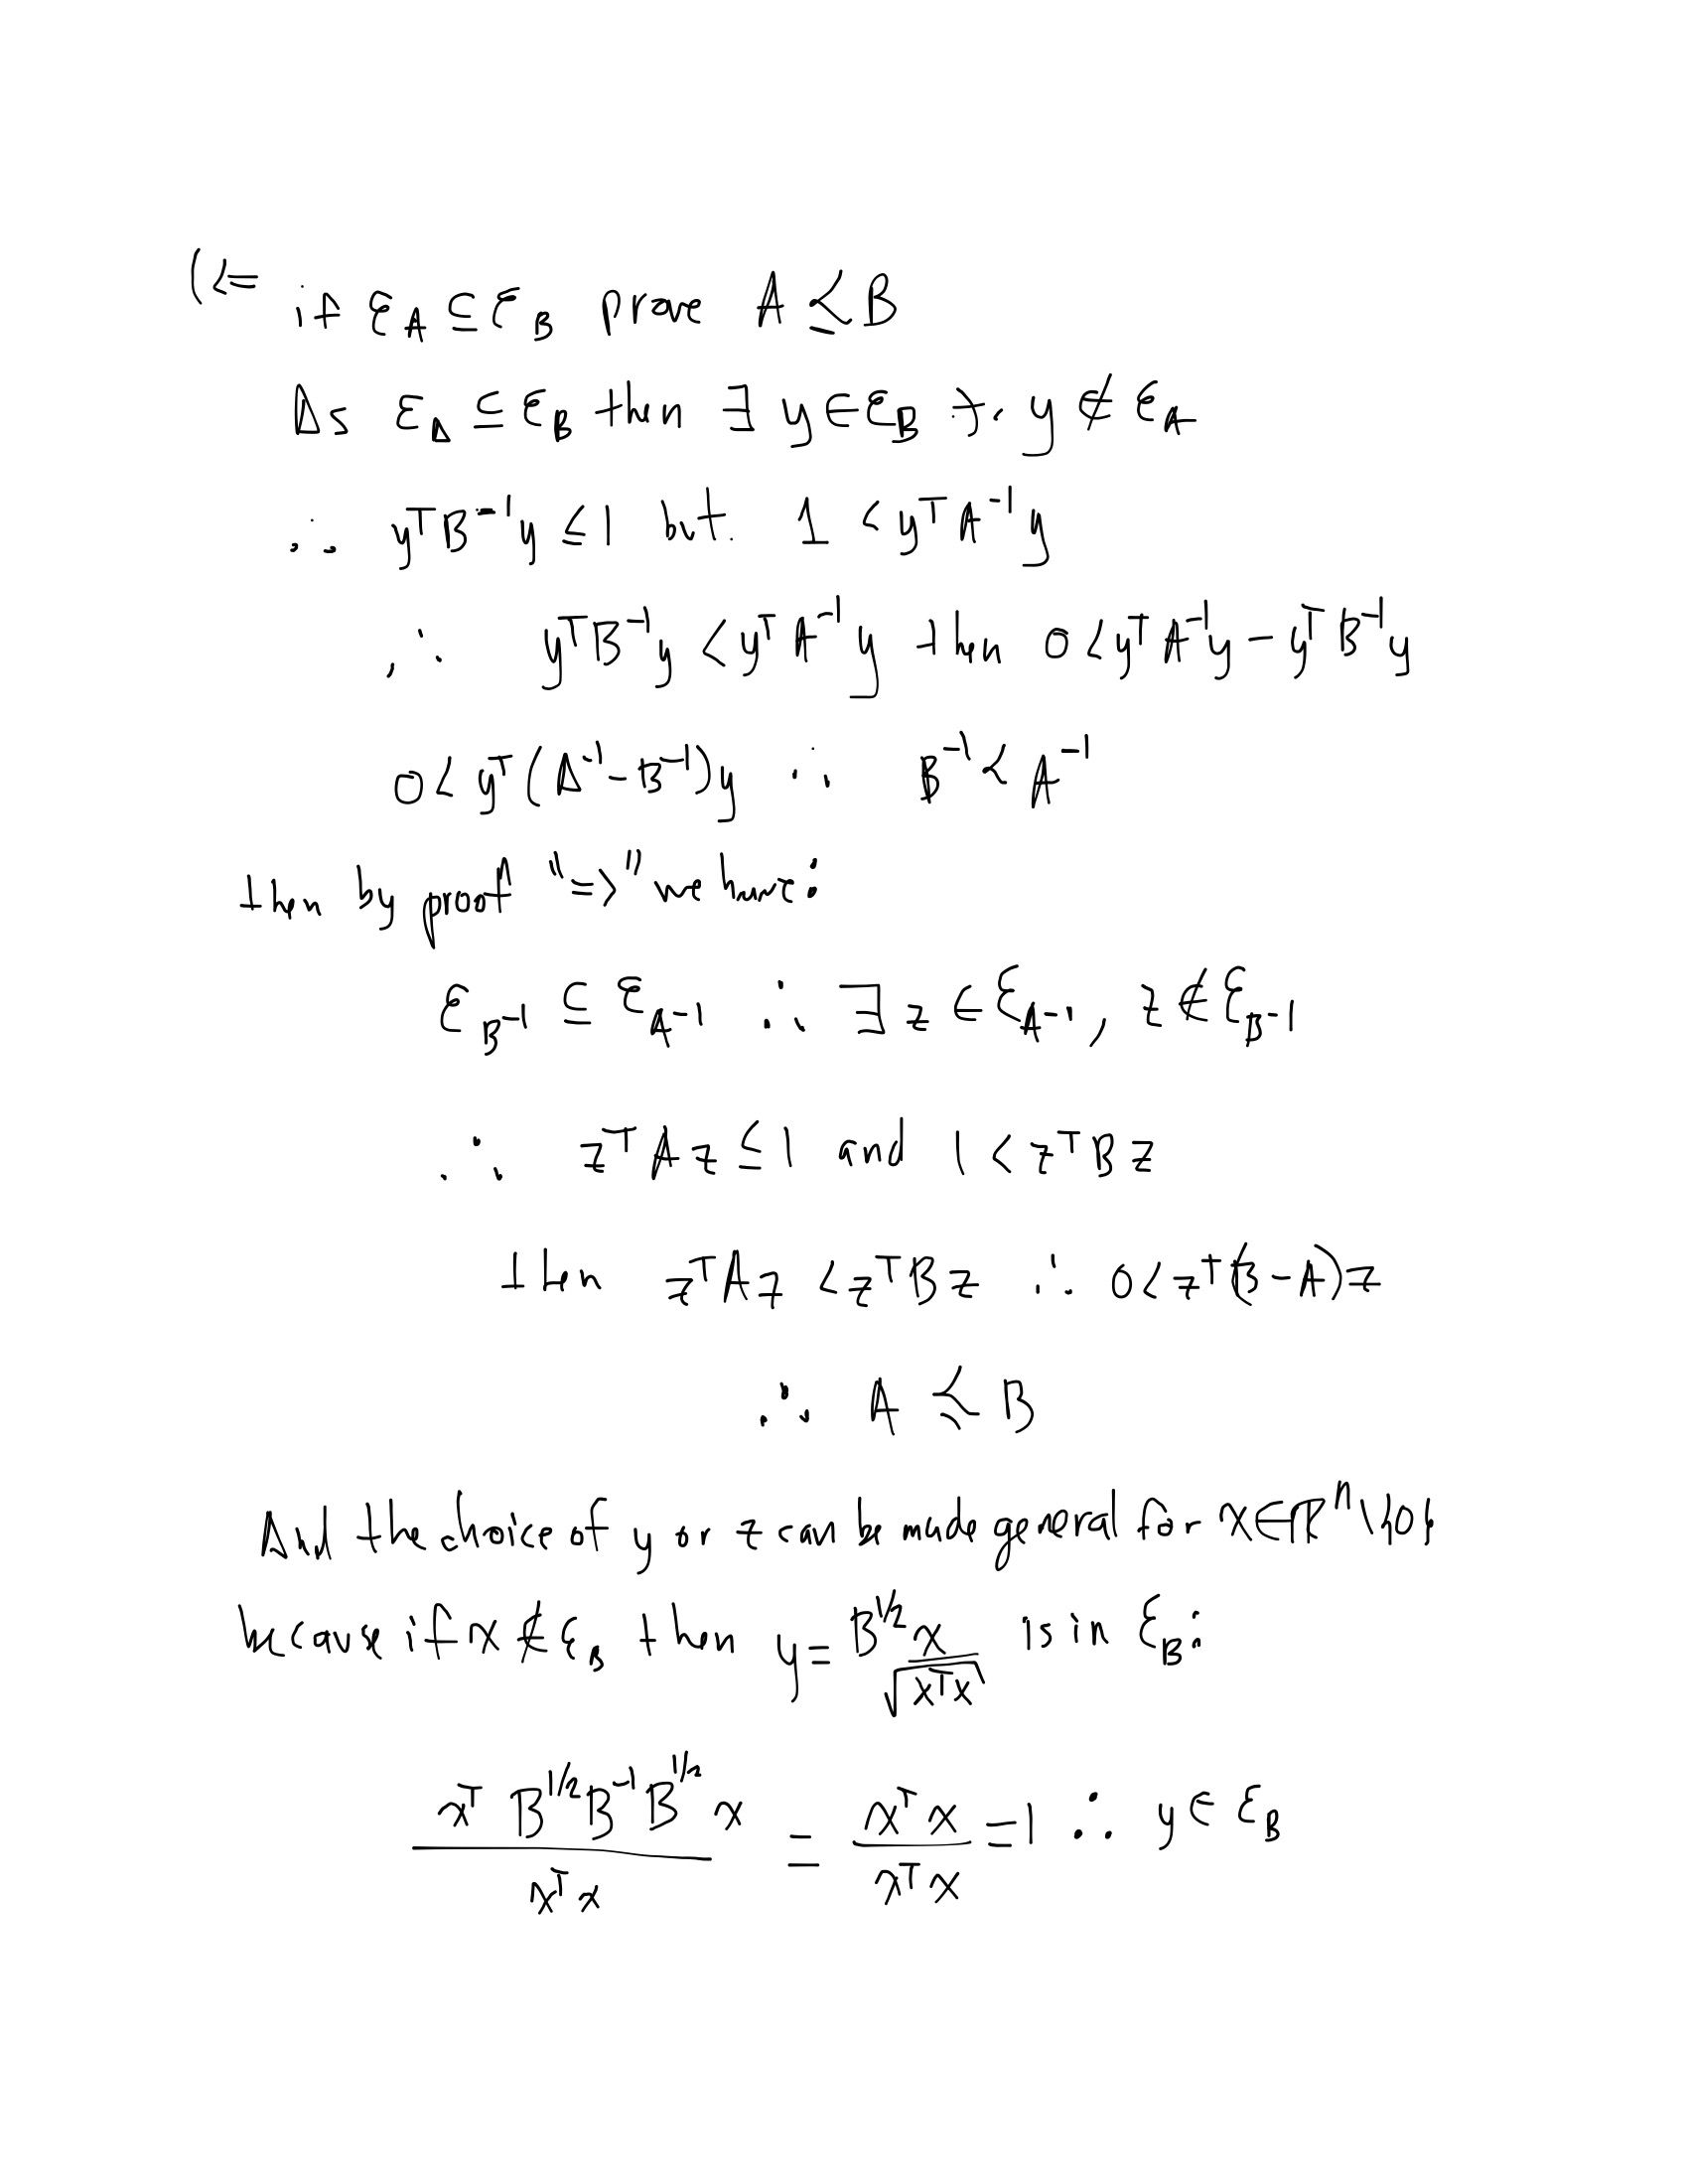 (<= if ℰ_A ⊆ ℰ_B prove A ⪯ B
As ℰ_A ⊆ ℰ_B then ∃ y ∈ ℰ_B ∋. y ∉ ℰ_A
∴ y^T B^{-1} y ≤ 1 but 1 < y^T A^{-1} y
∴ y^T B^{-1} y < y^T A^{-1} y then 0 < y^T A^{-1} y - y^T B^{-1} y
0 < y^T (A^{-1} - B^{-1}) y ∴ B^{-1} ≺ A^{-1}
then by proof "=>" we have:
ℰ_{B^{-1}} ⊆ ℰ_{A^{-1}} ∴ ∃ z ∈ ℰ_{A^{-1}}, z ∉ ℰ_{B^{-1}}
∴ z^T A z ≤ 1 and 1 < z^T B z
then z^T A z < z^T B z ∴ 0 < z^T (B - A) z
∴ A ⪯ B
And the choice of y or z can be made general for x ∈ ℝ^n \ {0}
because if x ∉ ℰ_B then y = B^{1/2} x / √(x^T x) is in ℰ_B:
x^T B^{1/2} B^{-1} B^{1/2} x / x^T x = x^T x / x^T x = 1 ∴ y ∈ ℰ_B